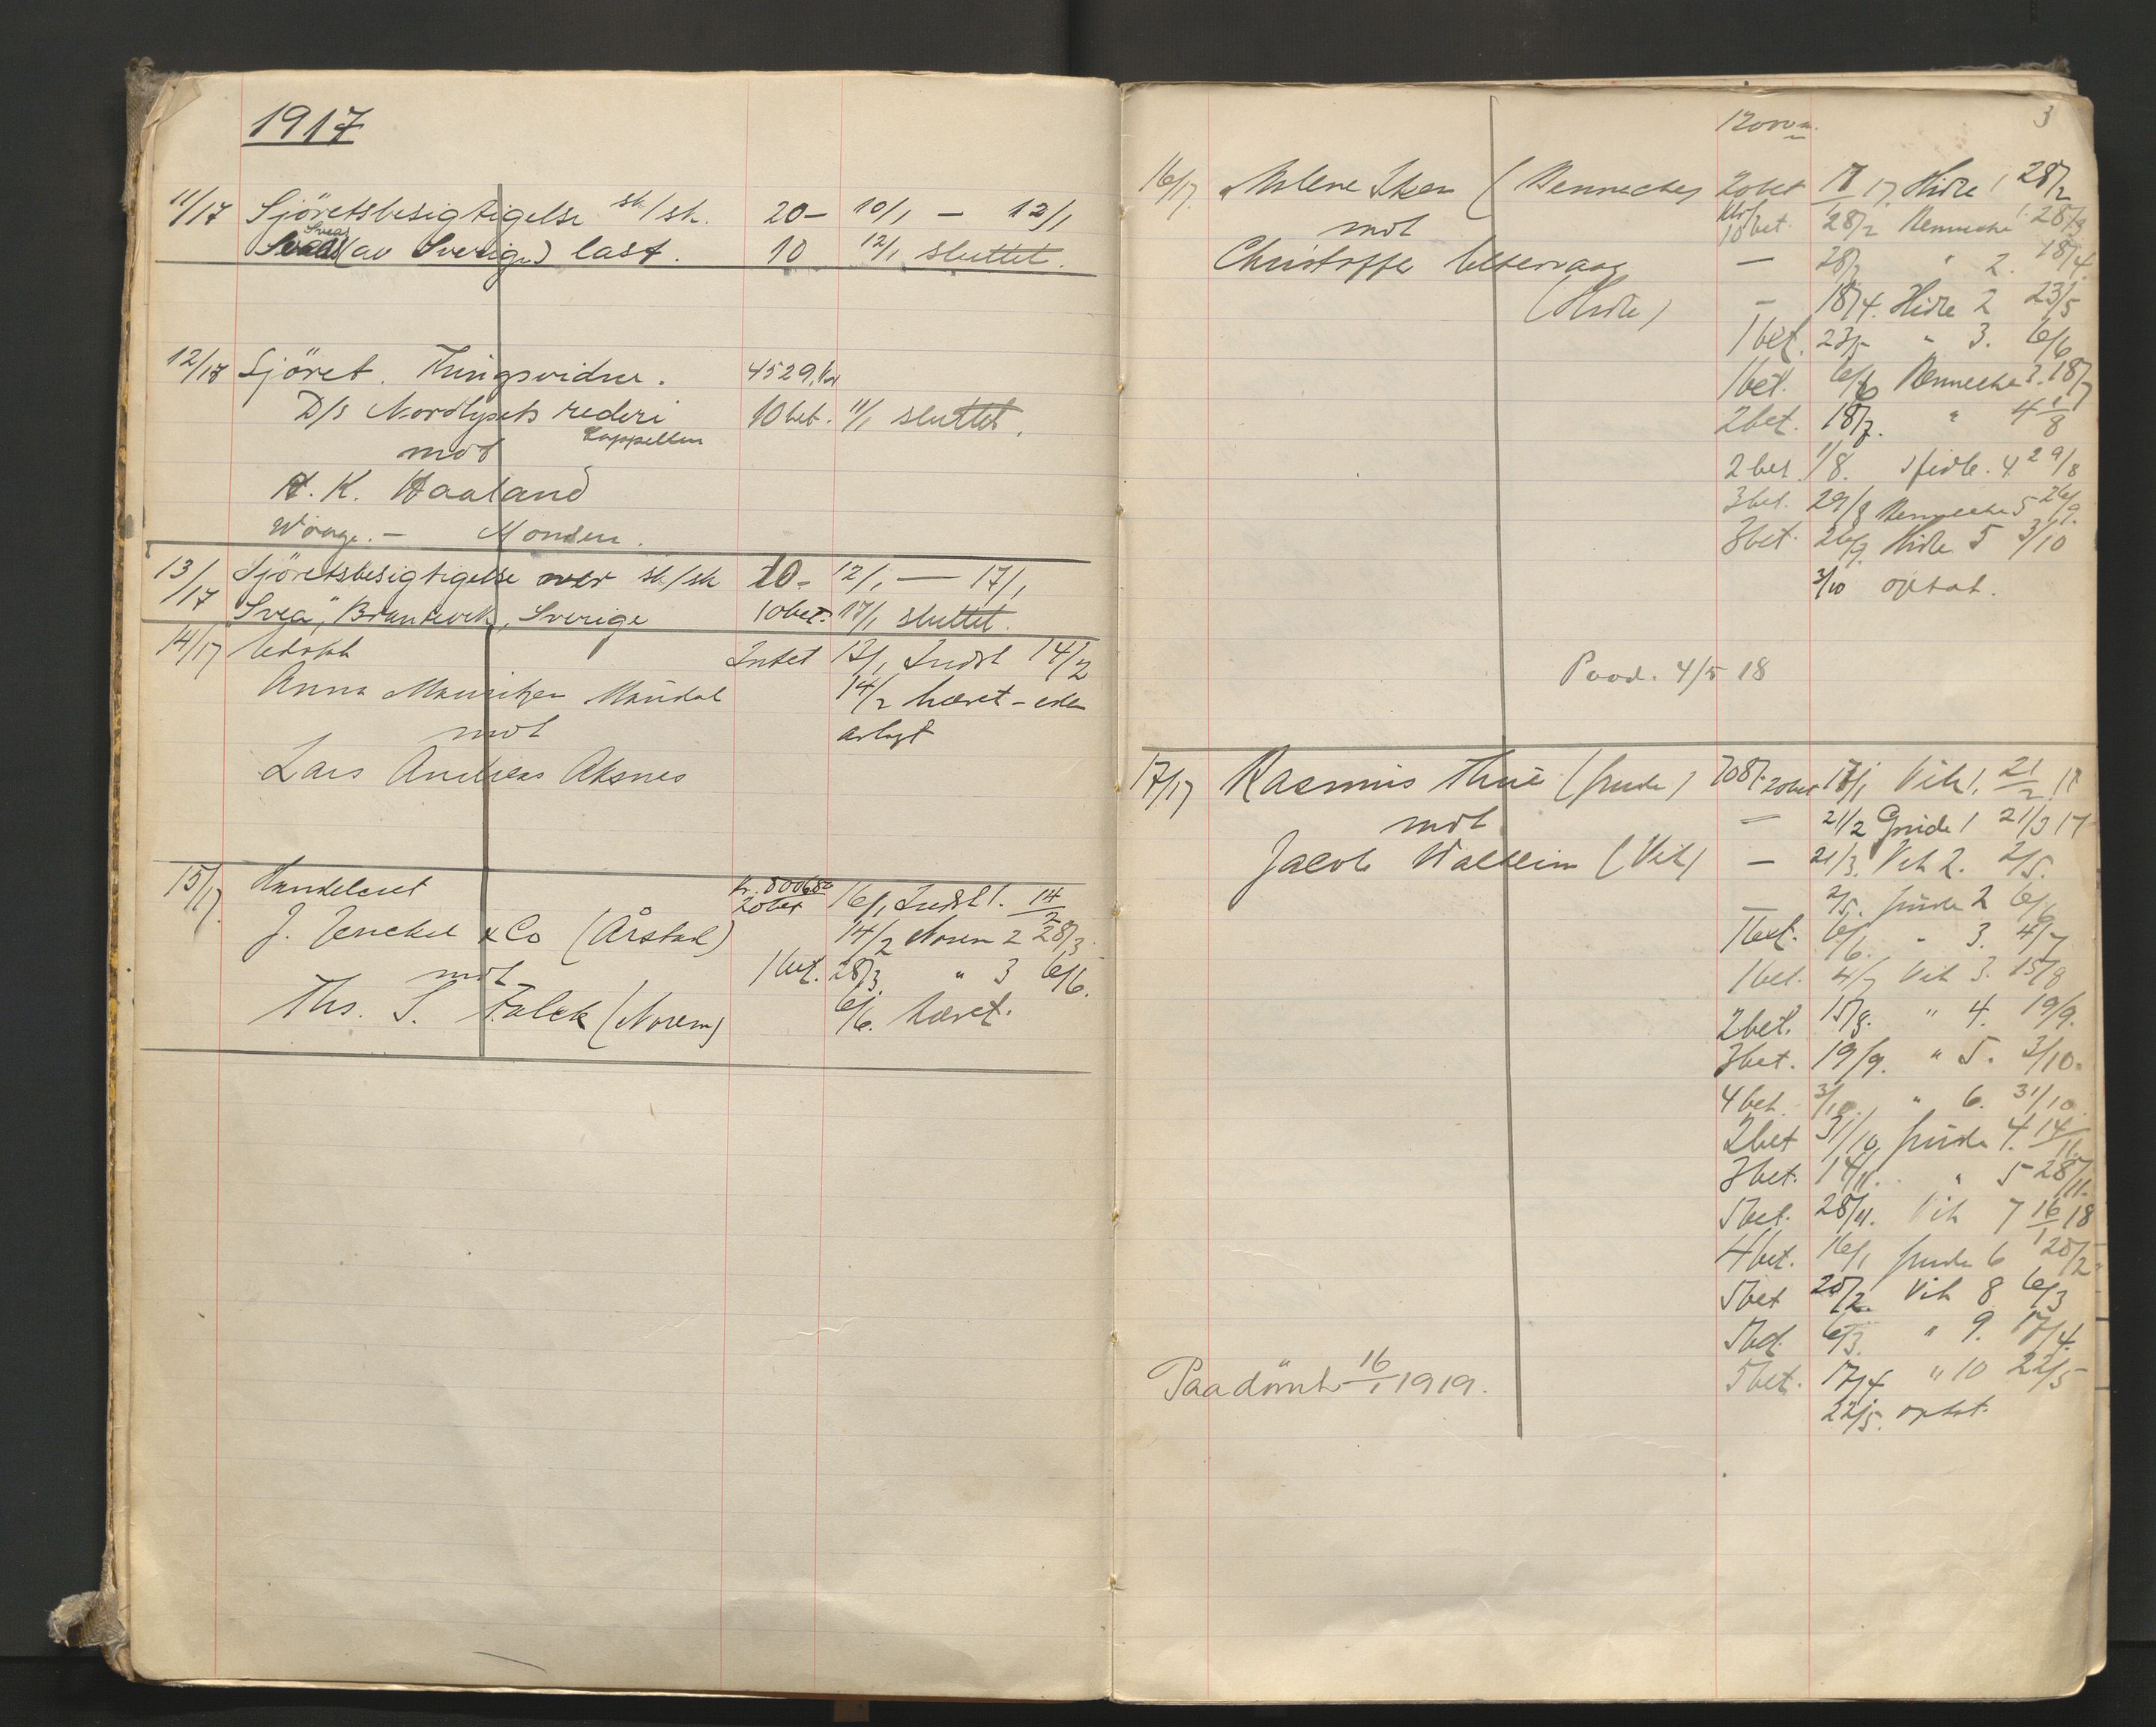 1917
11/17 Sjöretsbesigtigelse sk/sk. 20- 10/1 - 12/1
Sveas
(av Sverige) last. 10 12/1 sluttet.
12/17 Sjöret. Tingsvidne. 4529,
D/s Nordlysets rederi 10 bet. 11/1 sluttet.
mot Kappellen
K. Haaland
Monsen.
13/17 Sjöretsbesigtigelse over sk/sk 10- 12/1 - 17/1
"Svea", Sverige 10 bet. 17/1 sluttet.
14/17 Intet 17/1 Indst 14/2
Anna Mauritzen Mandal 14/2 hævet - eden
mot avlagt
Lars Andreas Aksnes
15/17 Handelsret Kr. 8006.82
20 bet 16/1 Indst 1. 14/2
J. & Co (Årstad) 14/2 Norem 2 28/3.
mot 1 bet. 28/3. " 3 6/6.
Ths. S. Falck (Norem) 6/6. hævet.
3
12000.-
16/17. (Denneches 20 bet 17 Hidle 1 28/2
mot 10 bet. 28/2 Denneche 1. 28/3
Christoffer - 28/3 " 2. 18/4.
(Hidle) - 18/4. Hidle 2 23/5
1 bet. 23/5 " 3. 6/6
1 bet. 6/6 Dennecke 3. 18/7
2 bet. 18/7. " 4 1/8
2 bet. 1/8. Hidle. 4. 29/8
3 bet. 29/8 Dennecke 5 26/9.
3 bet. 26/9 Hidle 5 3/10
3/10 optat.
Paad. 4/5 18
17/17 Rasmus Thue (Grude) 708,- 20 bet 17/1 Vik 1. 21/2 17
mot - 21/2 Grude 1 21/3 17
Jacob Walheim (Vik) - 21/3. Vik 2. 2/5.
- 2/5. Grude 2 6/6
1 bet. 6/6. " 3. 4/7
1 bet. 4/7 Vik 3. 15/8
2 bet. 15/8. " 4. 19/9.
3 bet. 19/9. " 5. 3/10.
4 bet. 3/10. " 6. 31/10.
2 bet 31/10 Grude 4. 14/11.
3 bet. 14/11. " 5 28/11.
5 bet. 28/11. Vik 7 16/1 18
4 bet. 16/1 Grude 6 20/2
5 bet 20/2. Vik 8 6/3
5 bet. 6/3. " 9. 17/4.
Paadömt 16/1 1919. 5 bet. 17/4 " 10 22/5
22/5. optat.